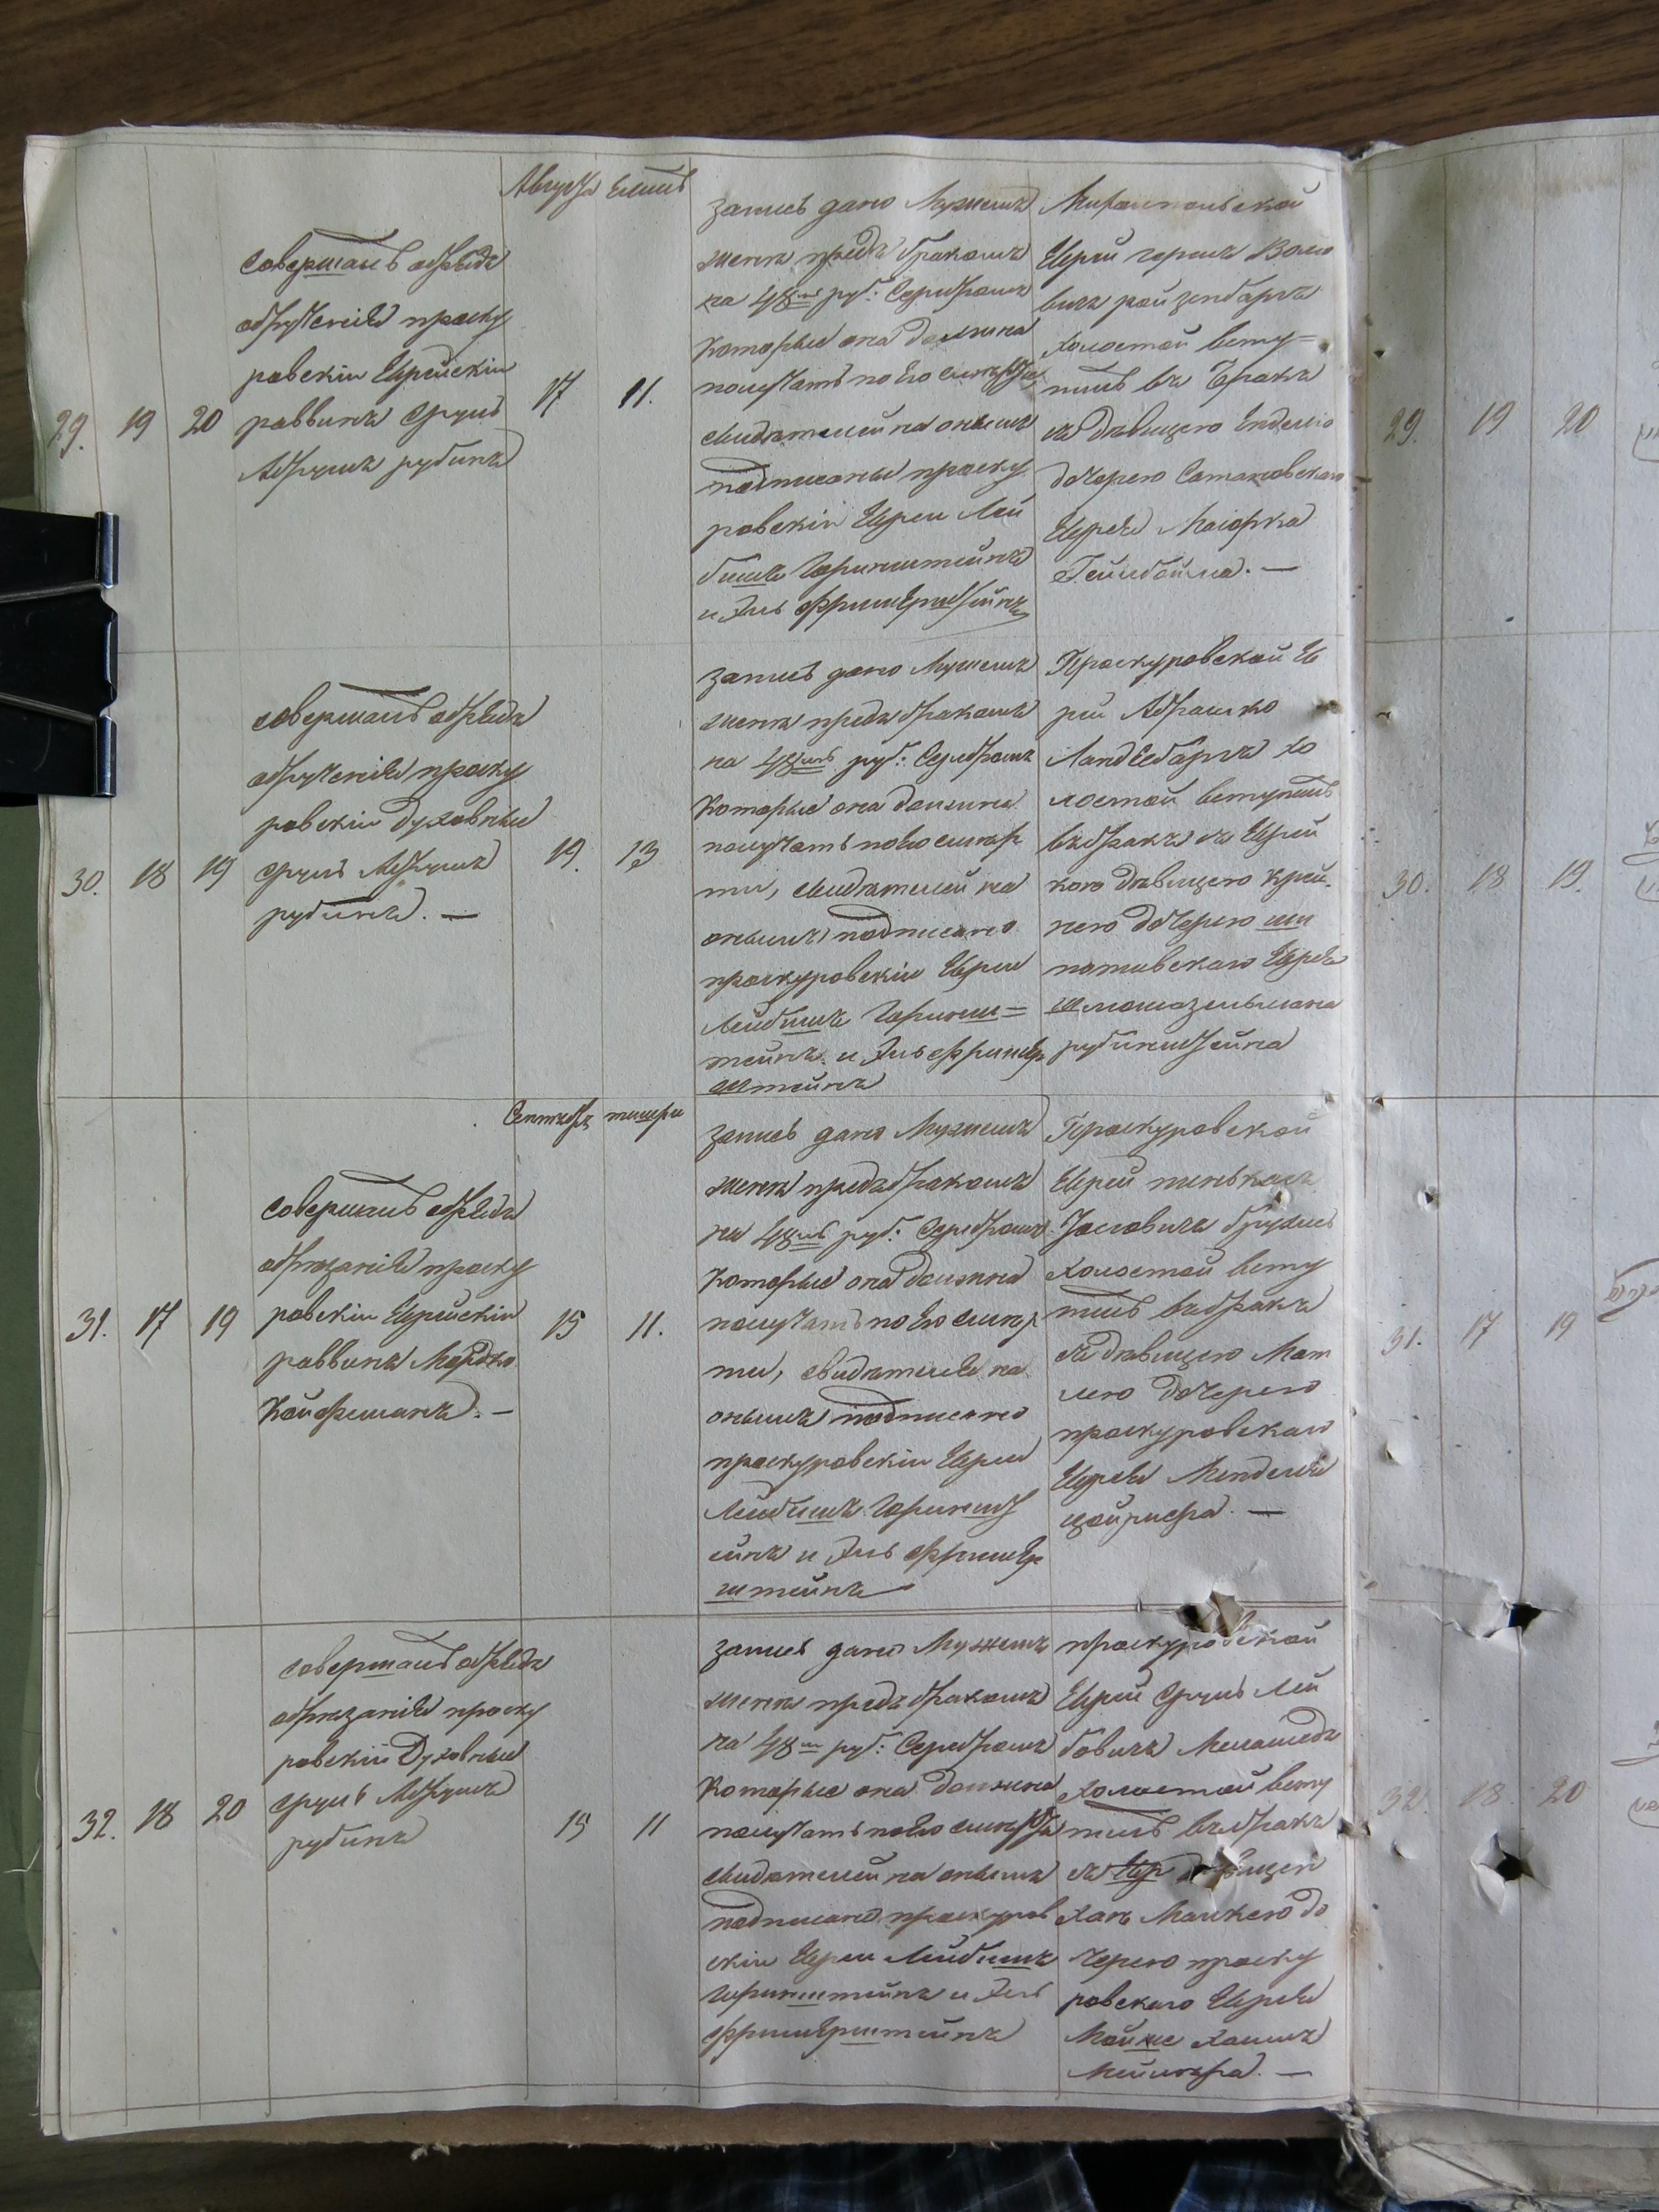 Августа Елюль
29. 19 20
совершалъ обрядъ
обрученія проску
ровскій Еврейскій
раввинъ Сруль
Абрумъ рубинъ
17 11.
запись дано Мужемъ
жене предъ бракомъ
на 48мь руб: Серебромъ
Которые она должна
получать по Его смерти
свидетелей на онымъ
подписаны проску
ровскіи Евреи Лей
бишъ Горинштейнъ
и Эль
Еврей герша Волко
вича
холостой всту=
пилъ въ бракъ
съ девицею Енделю
дочерею Сатановскаго
Еврея Маіорка
30. 18 19
совершалъ обрядъ
обрученія проску
ровскіи духовные
Сруль Абрумъ
рубинъ. —
19. 13
запись дано Мужемъ
жене предъ бракомъ
на 48мь руб: Серебромъ
Которые она должна
получать по Его смер
ти, свидетелей на
онымъ подписано
проскуровскіи Евреи
Лейбишъ Горинш=
тейнъ. и Эль
штейнъ
Проскуровской Ев
рей Абрашко
Хо
лостой вступилъ
въ бракъ съ Еврей
кою девицею Крей.
нею дочерею
Еврея
рубинштейна
Сентябр тишри
31. 17 19
совершалъ обрядъ
обрезанія проску
ровскіи Еврейскіи
раввинъ Мордко
Койфманъ. —
15 11.
запись дано Мужемъ
жене предъ бракомъ
на 48мь руб: Серебромъ
Которые она должна
получать по Его смер
ти, свидетелей на
онымъ подписано
проскуровскіи Евреи
Лейбишъ Гориншт
ейнъ и Эль
штейнъ
Проскуровской
Еврей пинькасъ
Іосіовичъ
Холостой всту
пилъ въ бракъ
съ девицею Мат
лею дочерею
проскуровскаго
Еврея Менделя
32. 18 20
совершалъ обрядъ
обрезанія проску
ровскіи Духовные
Сруль Абрумъ
рубинъ
15 11
запись дано Мужемъ
жене предъ бракомъ
на 48мь руб: Серебромъ
Которые она должна
получать по Его смерти
свидетелей на онымъ
подписано проскуров
скіи Евреи Лейбишъ
Горинштейнъ и Эль
проскуровской
Еврей Сруль Лей
бовичъ
Холостой всту
пилъ въ бракъ
съ девицею
Малкею до
черею проску
ровскаго Еврея
29. 19 20
30. 18 19.
31. 17 19
32. 18. 20